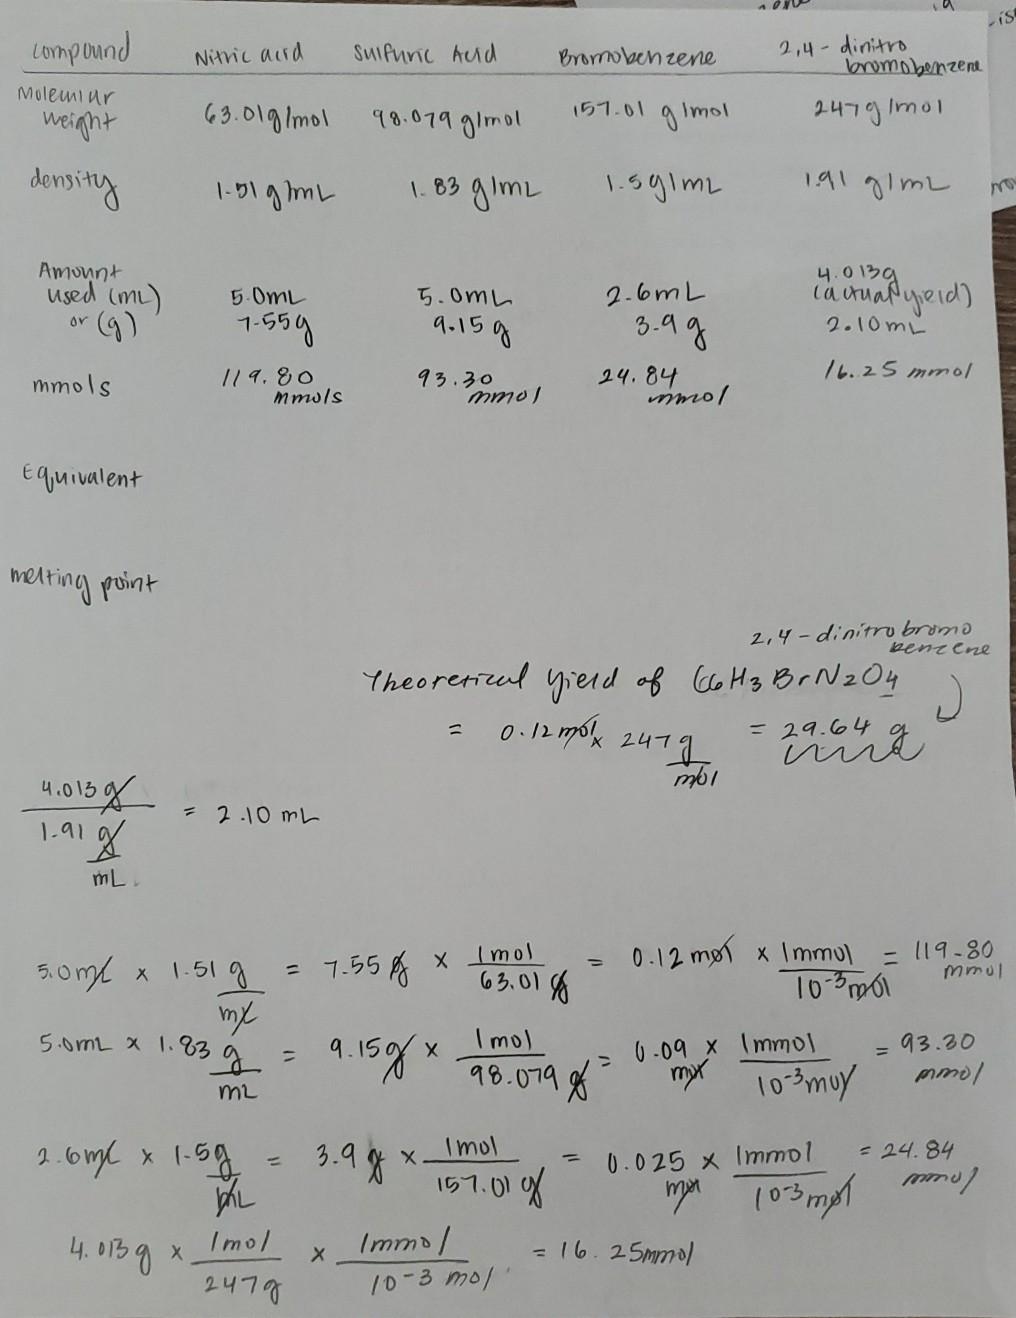 compound Nitric acid Sulfuric Acid Bromobenzene 2,4-dinitro bromobenzene
Molecular weight 63.01g/mol 98.079 g/mol 157.01 g/mol 247g/mol
density 1.51 g/mL 1.83 g/mL 1.5g/mL 1.91 g/mL
Amount used (mL) or (g) 5.0mL 5.0mL 2.6mL 4.013g (actual yield)
7.55g 9.15g 3.9g 2.10mL
mmols 119.80 mmols 93.30 mmol 24.84 mmol 16.25 mmol
Equivalent
melting point
2,4-dinitrobromo benzene
Theoretical yield of C6H3BrN2O4
= 0.12 mol x 247 g/mol = 29.64 g
4.013 g / 1.91 g/mL = 2.10 mL
5.0mL x 1.51 g/mL = 7.55 g x 1mol/63.01 g = 0.12 mol x 1mmol/10-3 mol = 119.80 mmol
5.0mL x 1.83 g/mL = 9.15g x 1mol/98.079 g = 0.09 mol x 1mmol/10-3 mol = 93.30 mmol
2.6mL x 1.5g/mL = 3.9 g x 1mol/157.01 g = 0.025 mol x 1mmol/10-3 mol = 24.84 mmol
4.013g x 1mol/247g x 1mmol/10-3 mol = 16.25mmol